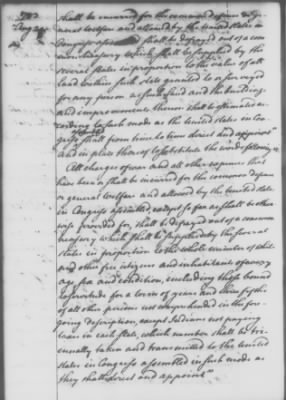 shall be incurred for the common defence or ge-
neral welfare and allowed by the United states in
Congress assembled shall be defrayed out of a com-
mon treasury which shall be supplied by the
several states in proportion to the value of all
land within each state granted to or surveyed
for any person as such land and the buildings
and improvements thereon shall be estimated ac-
cording to such mode as the united states in Con-
gress assembled shall from time to time direct and appoint"
and in place thereof to substitute the words following
All charges of war and all other expences that
have been or shall be incurred for the common defence
or general welfare and allowed by the United states
in Congress assembled, except so far as shall be other
wise provided for, shall be defrayed out of a common
treasury which shall be supplied by the several
states in proportion to the whole number of white
and other free citizens and inhabitants of every
age sex and condition, including those bound
to servitude for a term of years and three fifths
of all other persons not comprehended in the fore-
going description, except Indians not paying
taxes in each state, which number shall be tri-
ennually taken and transmitted to the United
states in Congress assembled in such mode as
they shall direct and appoint"